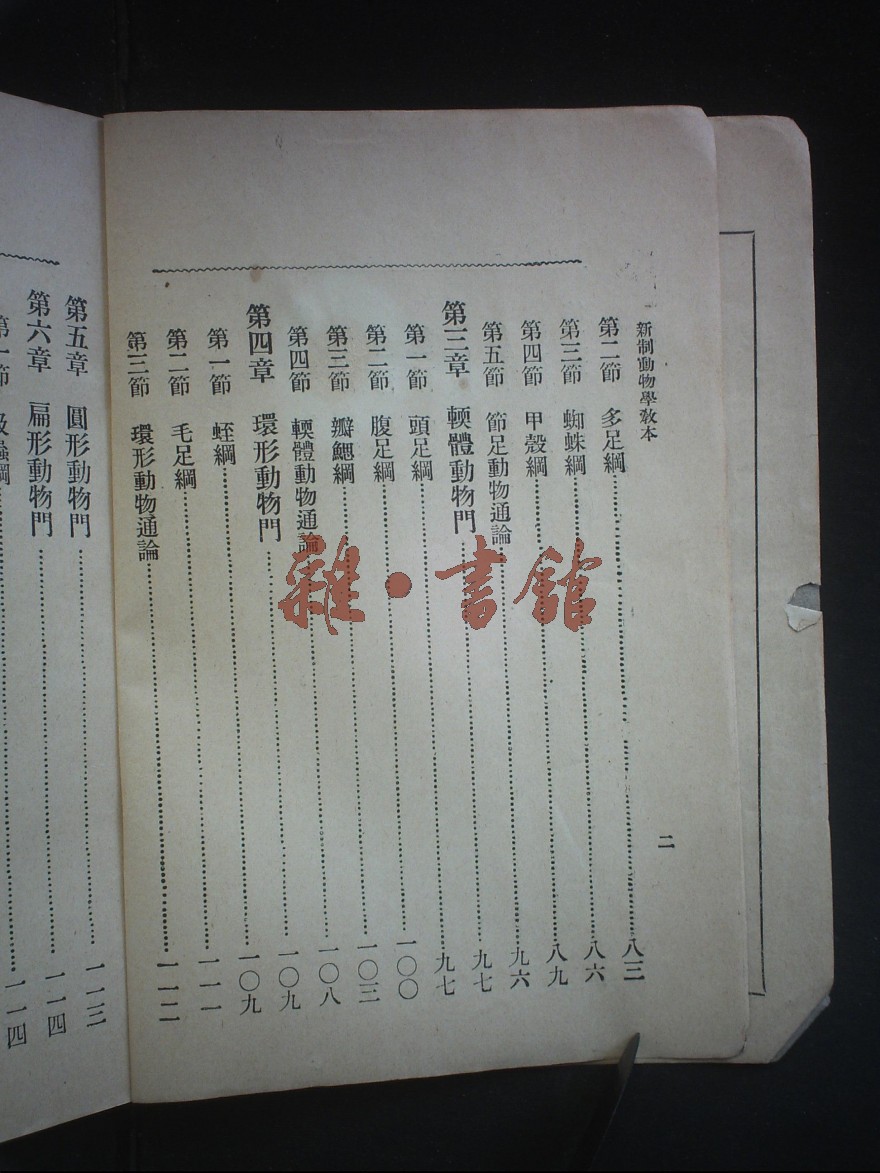 新制動物學敎本
二
第二節 多足綱……八三
第三節 蜘蛛綱……八六
第四節 甲殼綱……八九
第五節 節足動物通論……九六
第三章 輭體動物門……九七
第一節 頭足綱……九七
第二節 腹足綱……一〇〇
第三節 瓣鰓綱……一〇三
第四節 輭體動物通論……一〇八
第四章 環形動物門……一〇九
第一節 蛭綱……一〇九
第二節 毛足綱……一一一
第三節 環形動物通論……一一二
第五章 圓形動物門……一一三
第六章 扁形動物門……一一四
第一節 蟲綱……一一四
雜·書館